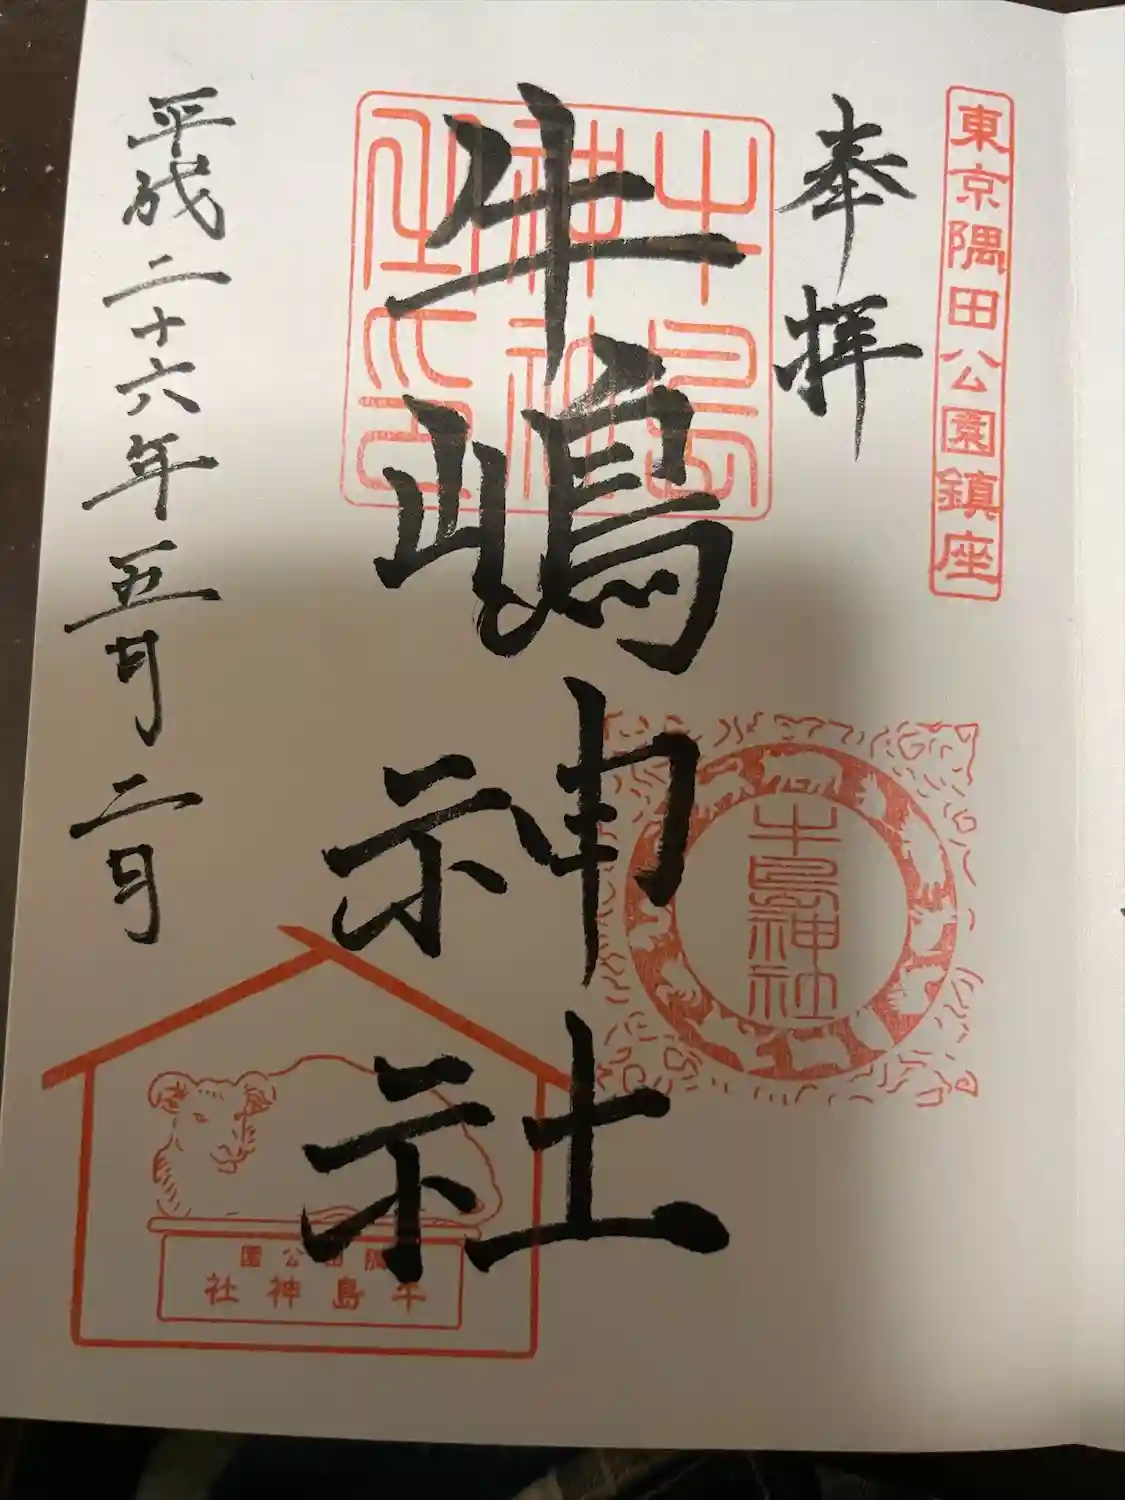 東京隅田公園鎮座
奉拝
牛嶋神社
牛島神社
平成二十六年五月二日
隅田公園
牛島神社